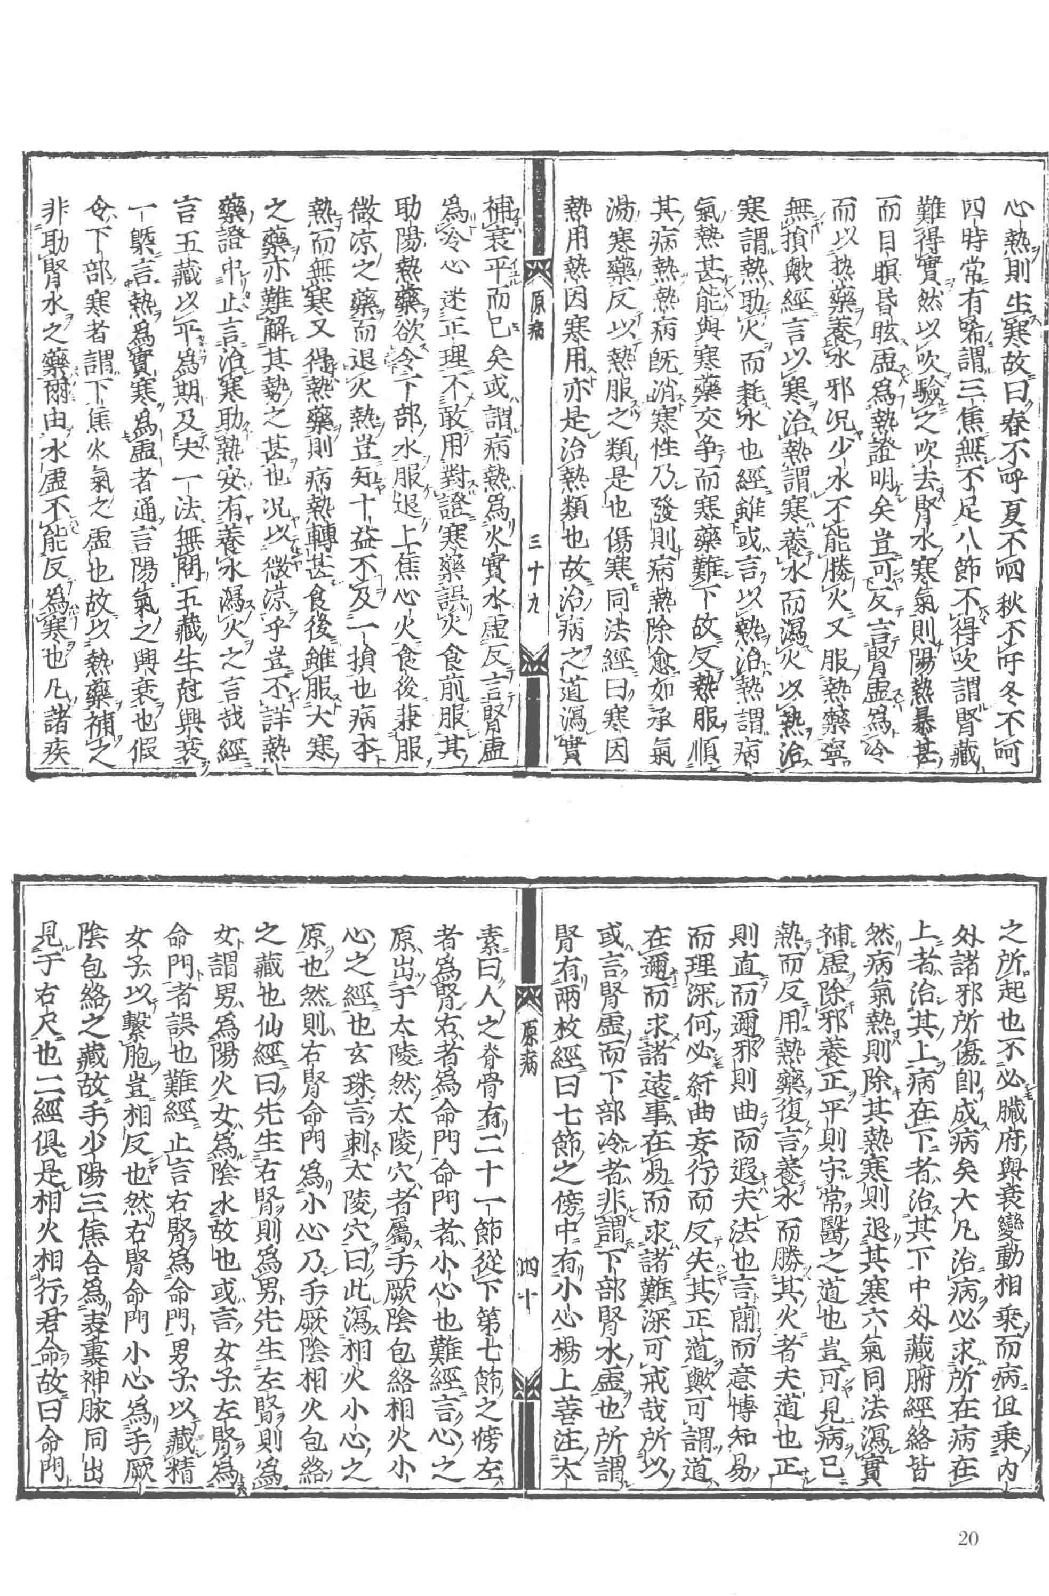 心熱則生寒故曰春不呼夏不呬秋不吁冬不呵
四時常有唏謂三焦無不足八節不得吹謂腎藏
難得實然以吹驗之吹去腎水寒氣則陽熱暴甚
而目瞑昏眩虛爲熱證明矣豈可反言腎虛爲冷
而以热藥養水邪况少水不能勝火又服熱藥寧
無損歟經言以寒治熱謂寒養水而瀉火以熱治
寒謂熱助火而耗水也經雖或言以熱治熱謂病
氣熱甚能與寒藥交争而寒藥難下故反熱服順
其病熱熱病旣消寒性乃發則病熱除愈如承氣
湯寒藥反以熱服之類是也傷寒同法經曰寒因
熱用熱因寒用亦是治熱類也故治病之道瀉實
原病
三十九
補衰平而已矣或謂病熱爲火實水虛反言腎虛
爲冷心迷正理不敢用對證寒藥誤火食前服其
助陽熱藥欲令下部水服退上焦心火食後兼服
微凉之藥而退火熱豈知十益不及一損也病本
熱而無寒又得熱藥則病熱轉甚食後雖服大寒
之藥亦難解其勢之甚也况以微凉乎豈不詳熱
藥證中止言治寒助熱安有養水瀉火之言哉經
言五藏以平爲期及夫一法無問五藏生尅興衰
一槩言熱爲實寒爲虛者通言陽氣之興衰也假
令下部寒者謂下焦火氣之虛也故以熱藥補之
非助腎水之藥爾由水虛不能反爲寒也凡諸疾
之所起也不必臟府興衰變動相乘而病但乘内
外諸邪所傷卽成病矣大凡治病必求所在病在
上者治其上病在下者治其下中外藏腑經絡皆
然病氣熱則除其熱寒則退其寒六氣同法瀉實
補虛除邪養正平則守常醫之道也豈可見病已
熱而反用熱藥復言養水而勝其火者夫道也正
則直而邇邪則曲而遐夫法也言蕳而意博知易
而理深何必紆曲妄行而反失其正道歟可謂道
在邇而求諸遠事在易而求諸難深可戒哉所以
或言腎虛而下部冷者非謂下部腎水虛也所謂
腎有兩枚經曰七節之傍中有小心楊上善注太
原病
四十
素曰人之脊骨有二十一節從下第七節之傍左
者爲腎右者爲命門命門者小心也難經言心之
原出于太陵然太陵穴者屬手厥陰包絡相火小
心之經也玄珠言刺太陵穴曰此瀉相火小心之
原也然則右腎命門爲小心乃手厥陰相火包絡
之藏也仙經曰先生右腎則爲男先生左腎則爲
女謂男爲陽火女爲陰水故也或言女子左腎爲
命門者誤也難經止言右腎爲命門男子以藏精
女子以繫胞豈相反也然右腎命門小心爲手厥
陰包絡之藏故手少陽三焦合爲表裏神脉同出
見于右尺也二經俱是相火相行君命故曰命門
20